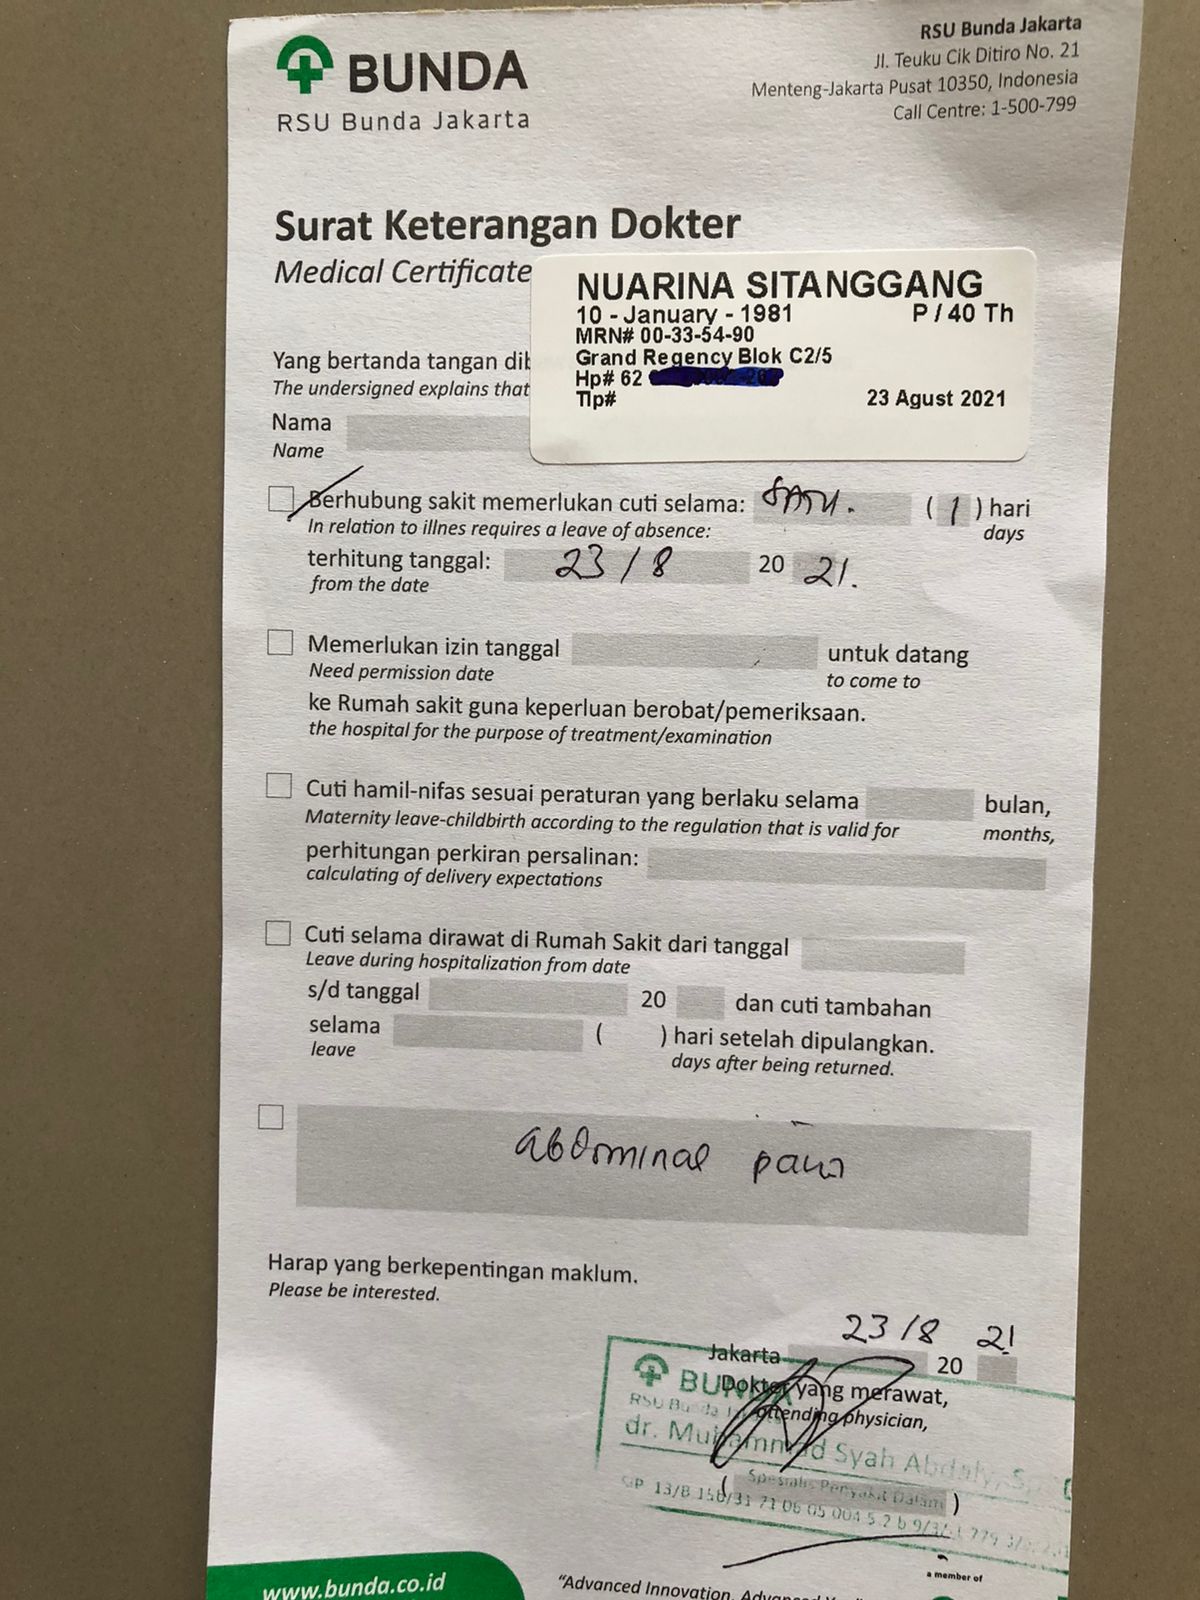 BUNDA
RSU Bunda Jakarta
RSU Bunda Jakarta
Jl. Teuku Cik Ditiro No. 21
Menteng-Jakarta Pusat 10350, Indonesia
Call Centre: 1-500-799
Surat Keterangan Dokter
Medical Certificate
NUARINA SITANGGANG
10 - January - 1981 P / 40 Th
MRN# 00-33-54-90
Grand Regency Blok C2/5
Hp# 62
Tlp# 23 Agust 2021
Yang bertanda tangan dib
The undersigned explains that
Nama
Name
Berhubung sakit memerlukan cuti selama: SATU. ( 1 ) hari
In relation to illnes requires a leave of absence: days
terhitung tanggal: 23 / 8 20 21.
from the date
Memerlukan izin tanggal untuk datang
Need permission date to come to
ke Rumah sakit guna keperluan berobat/pemeriksaan.
the hospital for the purpose of treatment/examination
Cuti hamil-nifas sesuai peraturan yang berlaku selama bulan,
Maternity leave-childbirth according to the regulation that is valid for months,
perhitungan perkiran persalinan:
calculating of delivery expectations
Cuti selama dirawat di Rumah Sakit dari tanggal
Leave during hospitalization from date
s/d tanggal 20 dan cuti tambahan
selama ( ) hari setelah dipulangkan.
leave days after being returned.
abdominal pain
Harap yang berkepentingan maklum.
Please be interested.
Jakarta 23/8 20 21
Dokter yang merawat,
attending physician,
BUNDA
RSU Bunda
dr. Muhammad Syah Abdaly, Sp
( Spesialis Penyakit Dalam )
www.bunda.co.id
"Advanced Innovation, Advanced
a member of